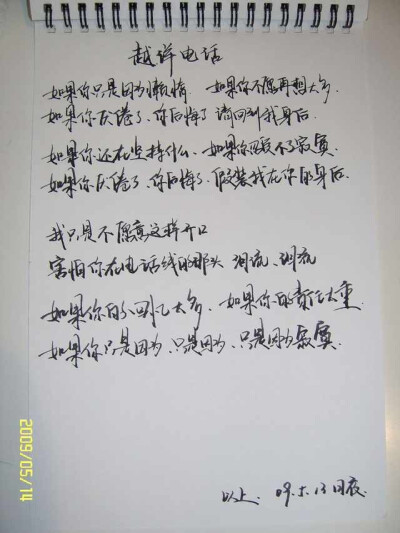 越洋电话
如果你只是因为懒惰 如果你不愿再想太多.
如果你厌倦了、你后悔了 请回到我身后.
如果你还在坚持什么、如果你忍受不了寂寞.
如果你厌倦了、你后悔了、假装我在你的身后.
我只是不愿意这样开口
害怕你在电话线的那头 泪流、泪流
如果你的回忆太多、如果你的责任太重.
如果你只是因为、只是因为、只是因为寂寞.
以上. 09.5.13日夜.
2009/05/14